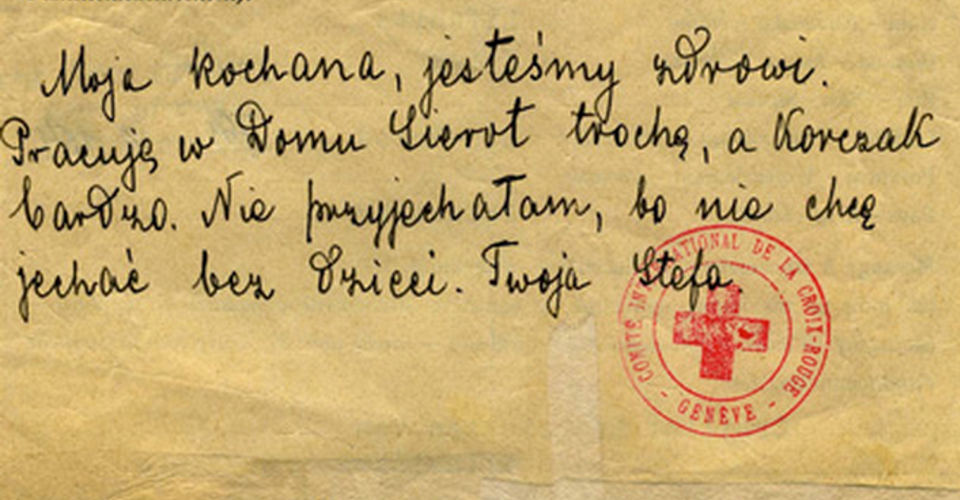 Moja kochana, jesteśmy zdrowi.
Pracuję w Domu Sierot trochę, a Korczak
bardzo. Nie przyjechałam, bo nie chcę
jechać bez dzieci. Twoja Stefa.
COMITÉ INTERNATIONAL DE LA CROIX-ROUGE
- GENÈVE -